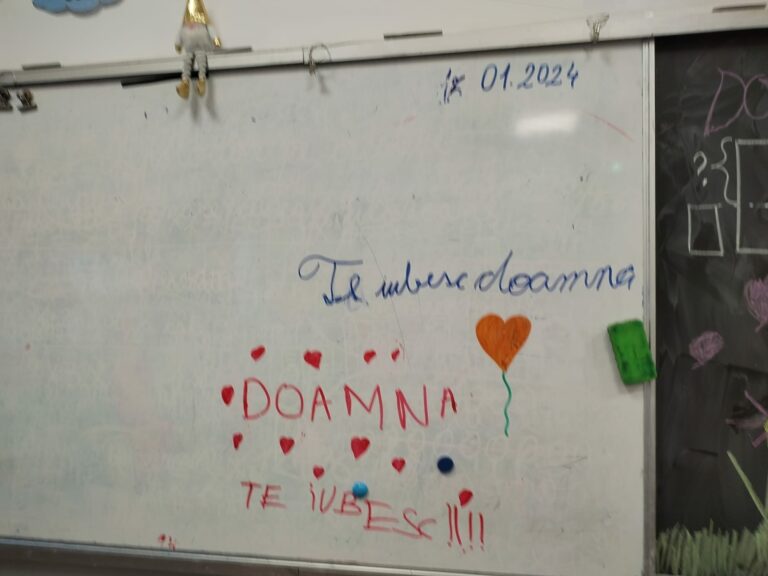 01.2024
Te iubesc doamna
DOAMNA
TE iUBESC !!!!
DO
?